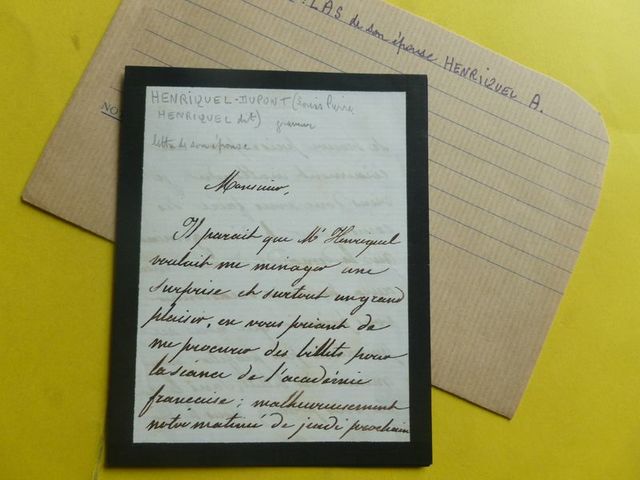 : LAS de son épouse HENRIQUEL A.
NO
HENRIQUEL-DUPONT (Louis Pierre
HENRIQUEL dit) graveur
lettre de son épouse
Monsieur,
Il parait que Mr Henriquel
voulait me ménager une
surprise et surtout un grand
plaisir, en vous priant de
me procurer des billets pour
la séance de l'académie
française; malheureusement
notre matinée de jeudi prochain